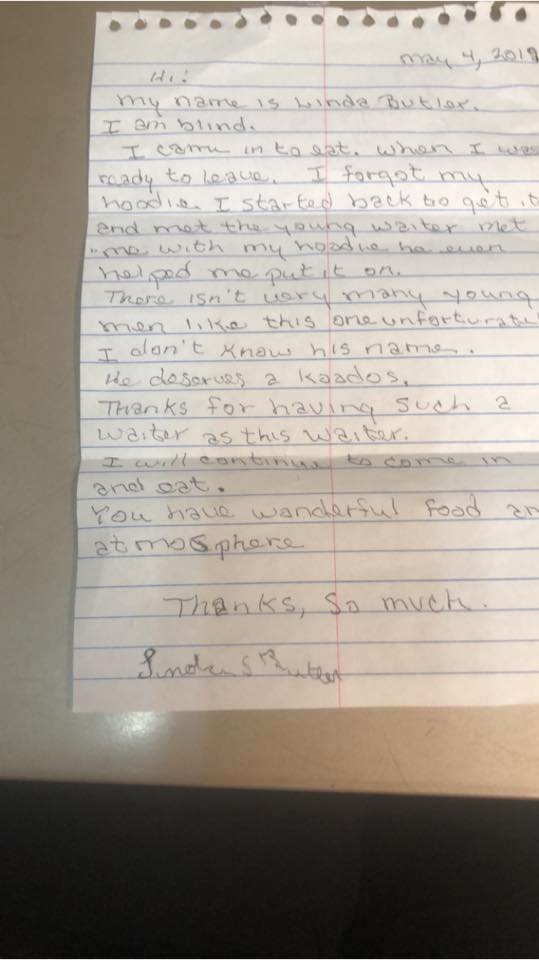 May 4, 2019
Hi:
My name is Linda Butler.
I am blind.
I came in to eat. When I was
ready to leave. I forgot my
hoodie. I started back to get it
and met the young waiter met
me with my hoodie he even
helped me put it on.
There isn't very many young
men like this one unfortunate
I don't know his name.
He deserves a Kaados.
Thanks for having such a
waiter as this waiter.
I will continue to come in
and eat.
You have wanderful food an
atmosphere
Thanks, so much.
Linda S Butler